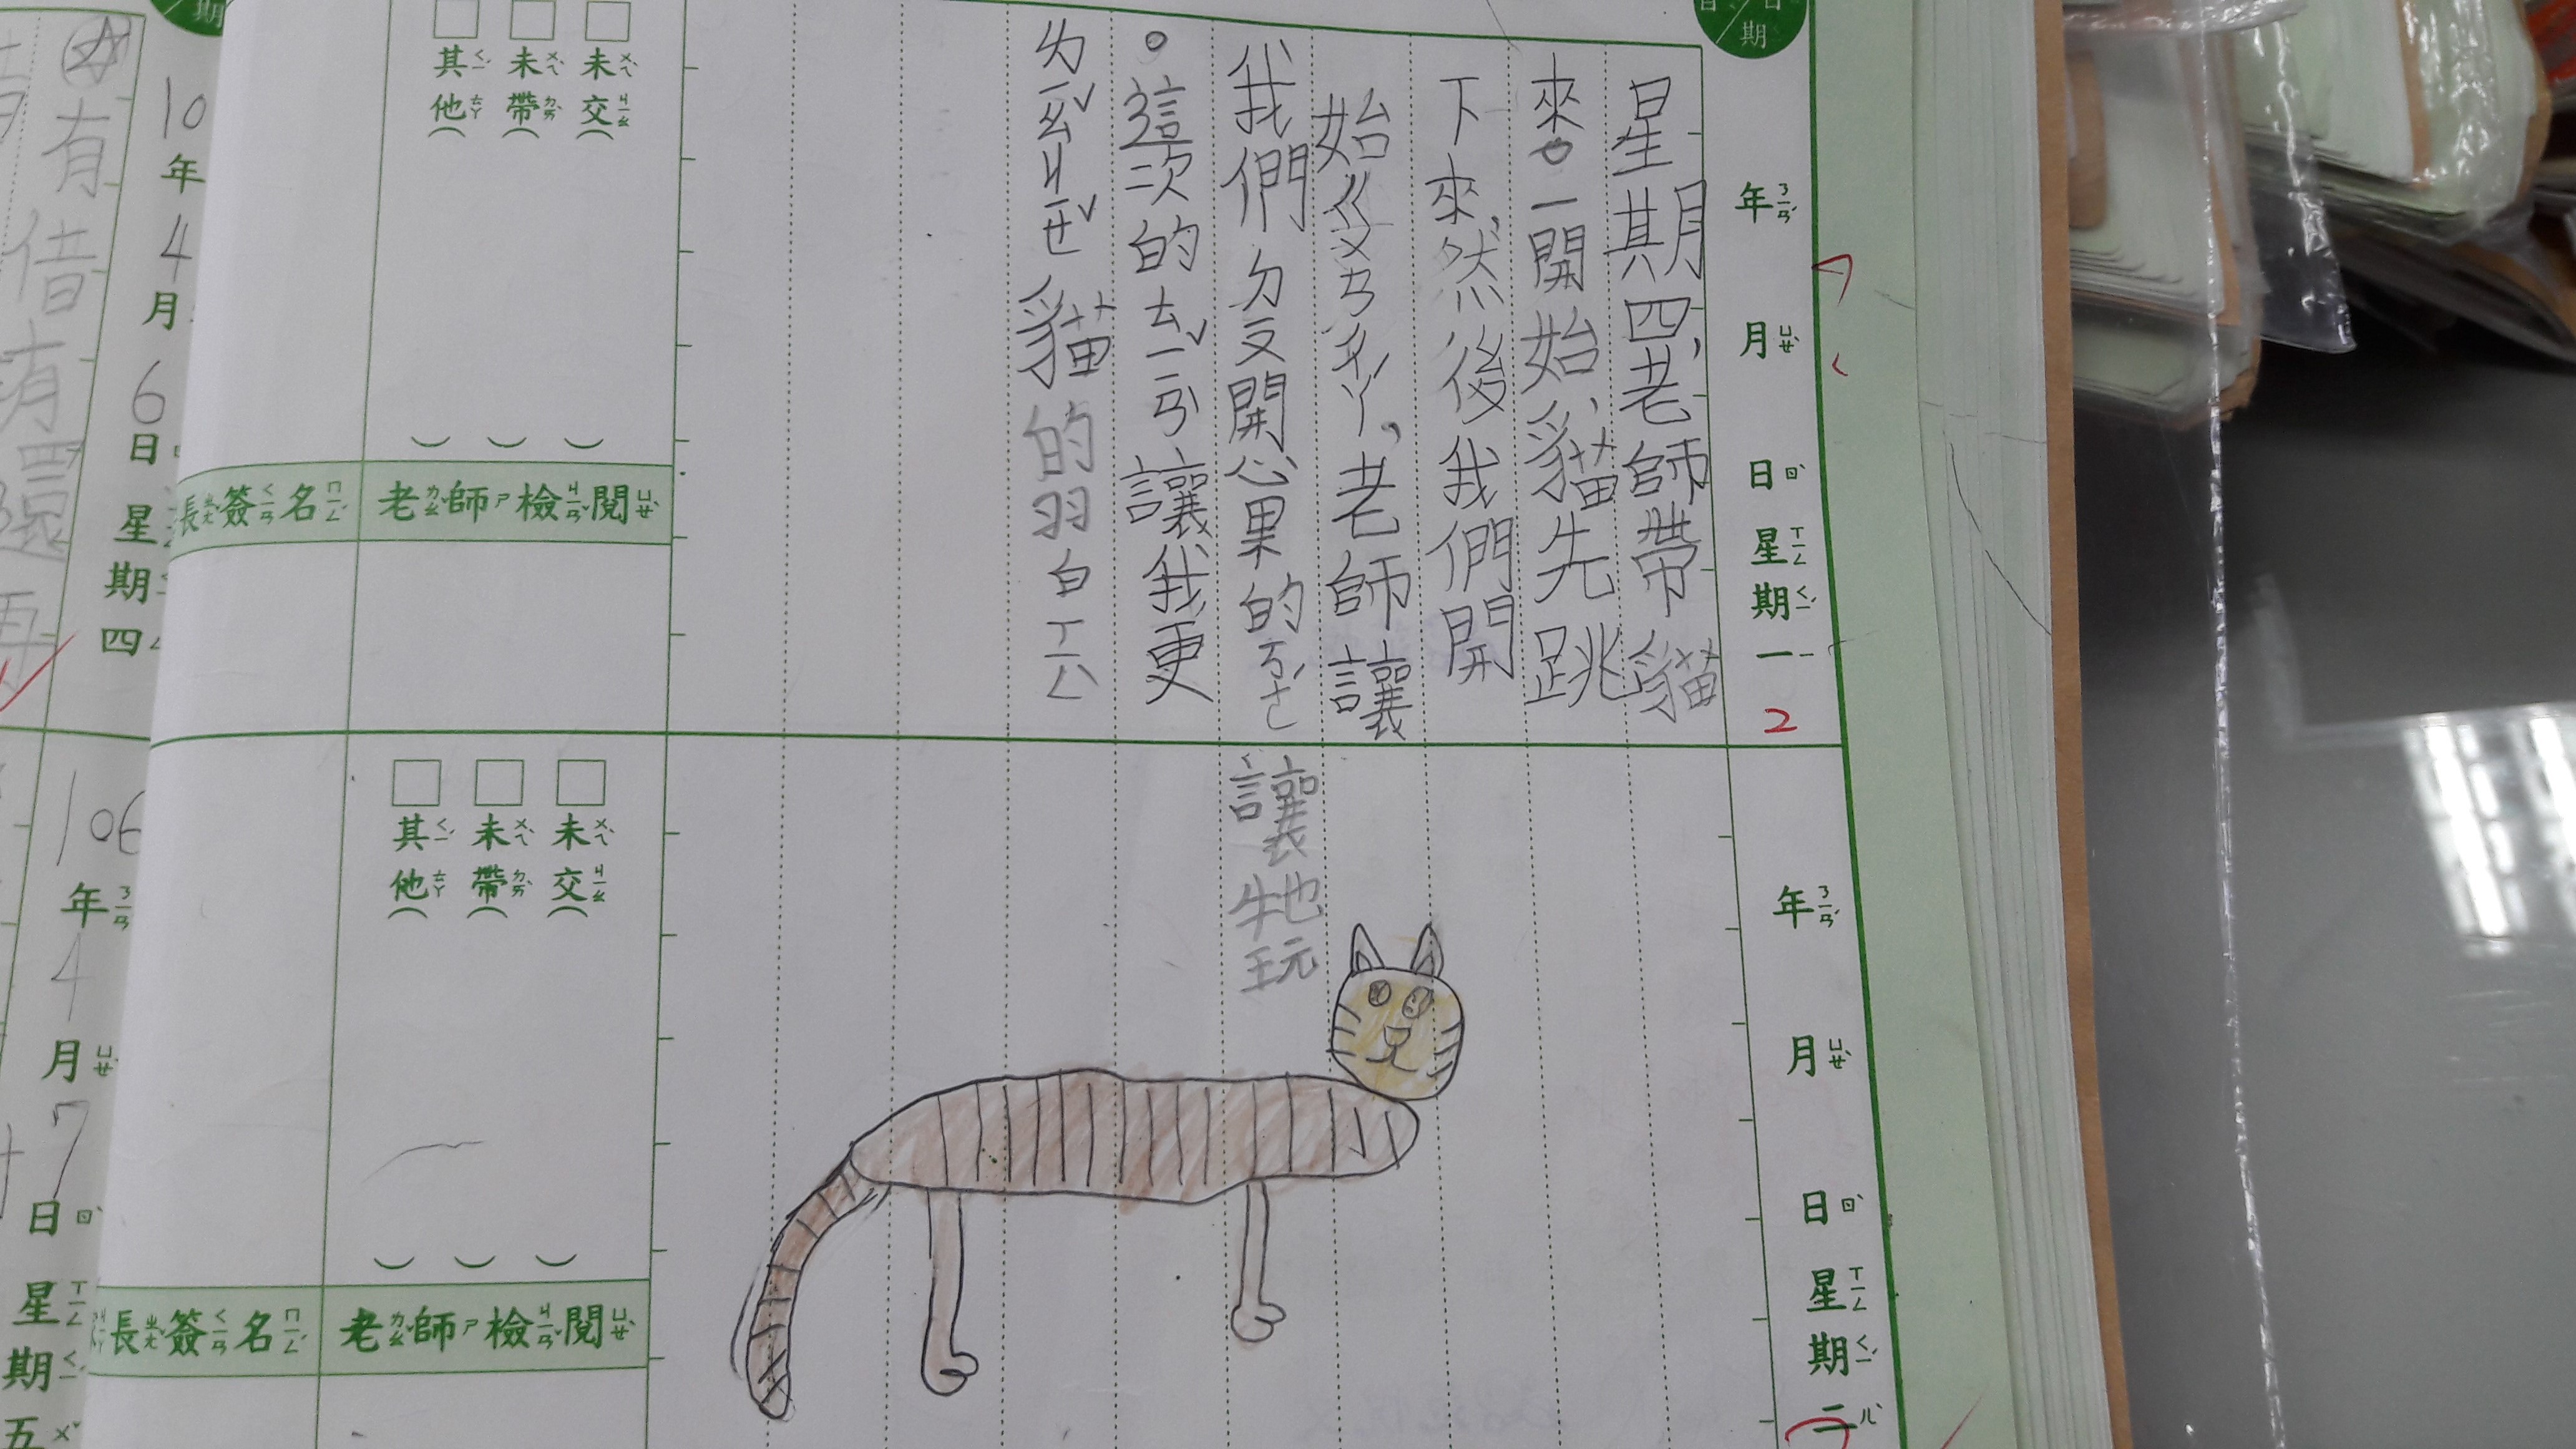 年ㄋㄧㄢˊ 月ㄩㄝˋ 日ㄖˋ 星ㄒㄧㄥ期ㄑㄧˊ一ㄧ
2
星期四,老師帶貓
來。一開始,貓先跳
下來,然後我們開
始ㄍㄨㄢ ㄔㄚˊ,老師讓
我們ㄉㄡ開心果的
讓牠玩
。這次的ㄊㄧˇㄧㄢˋ讓我更
ㄌㄧㄠˇㄐㄧㄝˇ貓的習ㄒㄧㄥˋ
未ㄨㄟˋ交ㄐㄧㄠ( )
未ㄨㄟˋ帶ㄉㄞˋ( )
其ㄑㄧˊ他ㄊㄚ( )
老ㄌㄠˇ師ㄕ檢ㄐㄧㄢˇ閱ㄩㄝˋ
長ㄓㄤˇ簽ㄑㄧㄢ名ㄇㄧㄥˊ
年ㄋㄧㄢˊ 月ㄩㄝˋ 日ㄖˋ 星ㄒㄧㄥ期ㄑㄧˊ二ㄦˋ
未ㄨㄟˋ交ㄐㄧㄠ( )
未ㄨㄟˋ帶ㄉㄞˋ( )
其ㄑㄧˊ他ㄊㄚ( )
老ㄌㄠˇ師ㄕ檢ㄐㄧㄢˇ閱ㄩㄝˋ
長ㄓㄤˇ簽ㄑㄧㄢ名ㄇㄧㄥˊ
10 年 4 月 6 日 星期四
有借有還再
106 年 4 月 7 日 星期五